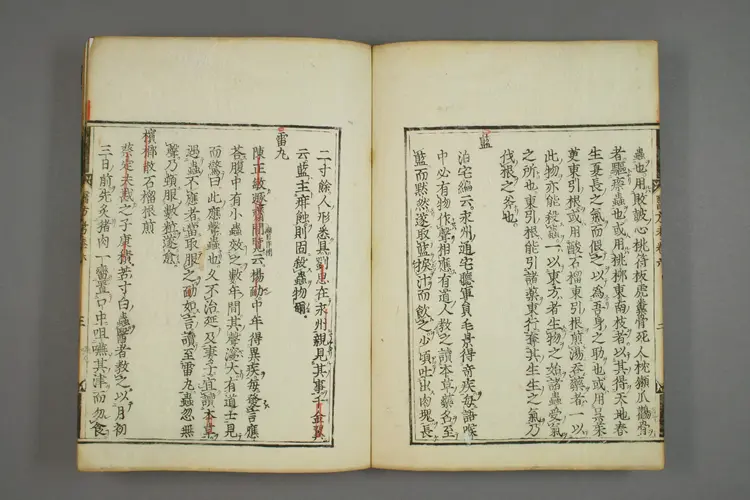 蟲也用敗皷心桃符板虎糞骨死人枕獺爪鸛骨
者驅瘵蟲也或用桃柳東南枝者以其得天地春
生養長之氣而假之以為吾身之助也或用吳茱
萸東引根或用酸石榴東引根煎湯吞藥者一以
此物亦能殺蟲一以東方者生物之始諸蟲受氣
之所也東引根能引諸藥東行奪其生生之氣乃
伐根之斧也
藍
泊宅編云永州通宅廳軍員毛景得奇疾每語喉
中必有物作聲相應有道人教之讀本草藥名至
藍而黙然遂取藍捩汁而飲之少頃吐出肉塊長
二寸餘人形悉具劉忠在永州親見其事千金翼
云藍主疰蝕則固殺蟲物爾
雷丸
陳正敏遯齋閒覽云楊勔中年得異疾每發言應
荅腹中有小蟲效之數年間其聲浸大有道士見
而驚曰此應聲蟲也久不治延及妻子宜讀本草
遇蟲不應者當取服之勔如言讀至雷丸蟲忽無
聲乃頓服數粒遂愈
檳榔散石榴根煎
蔡定夫戡之子康積苦寸白蟲醫者教之以月初
三日前先炙猪肉一臠置口中咀嚥其津而勿食